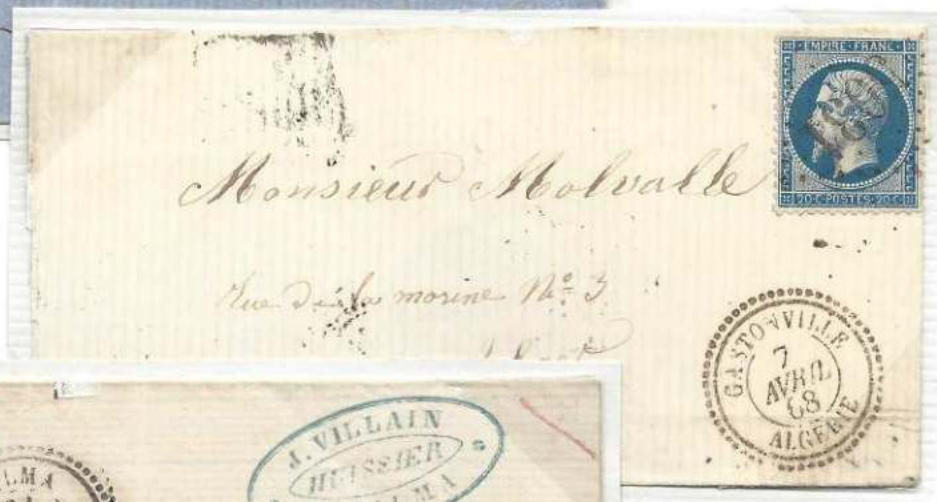 EMPIRE FRANC
20 C POSTES 20 C
Monsieur Molvalle
Rue de la marine Nº 3
GASTONVILLE
7
AVRIL
68
ALGÉRIE
J. VILLAIN
HUISSIER
LMA